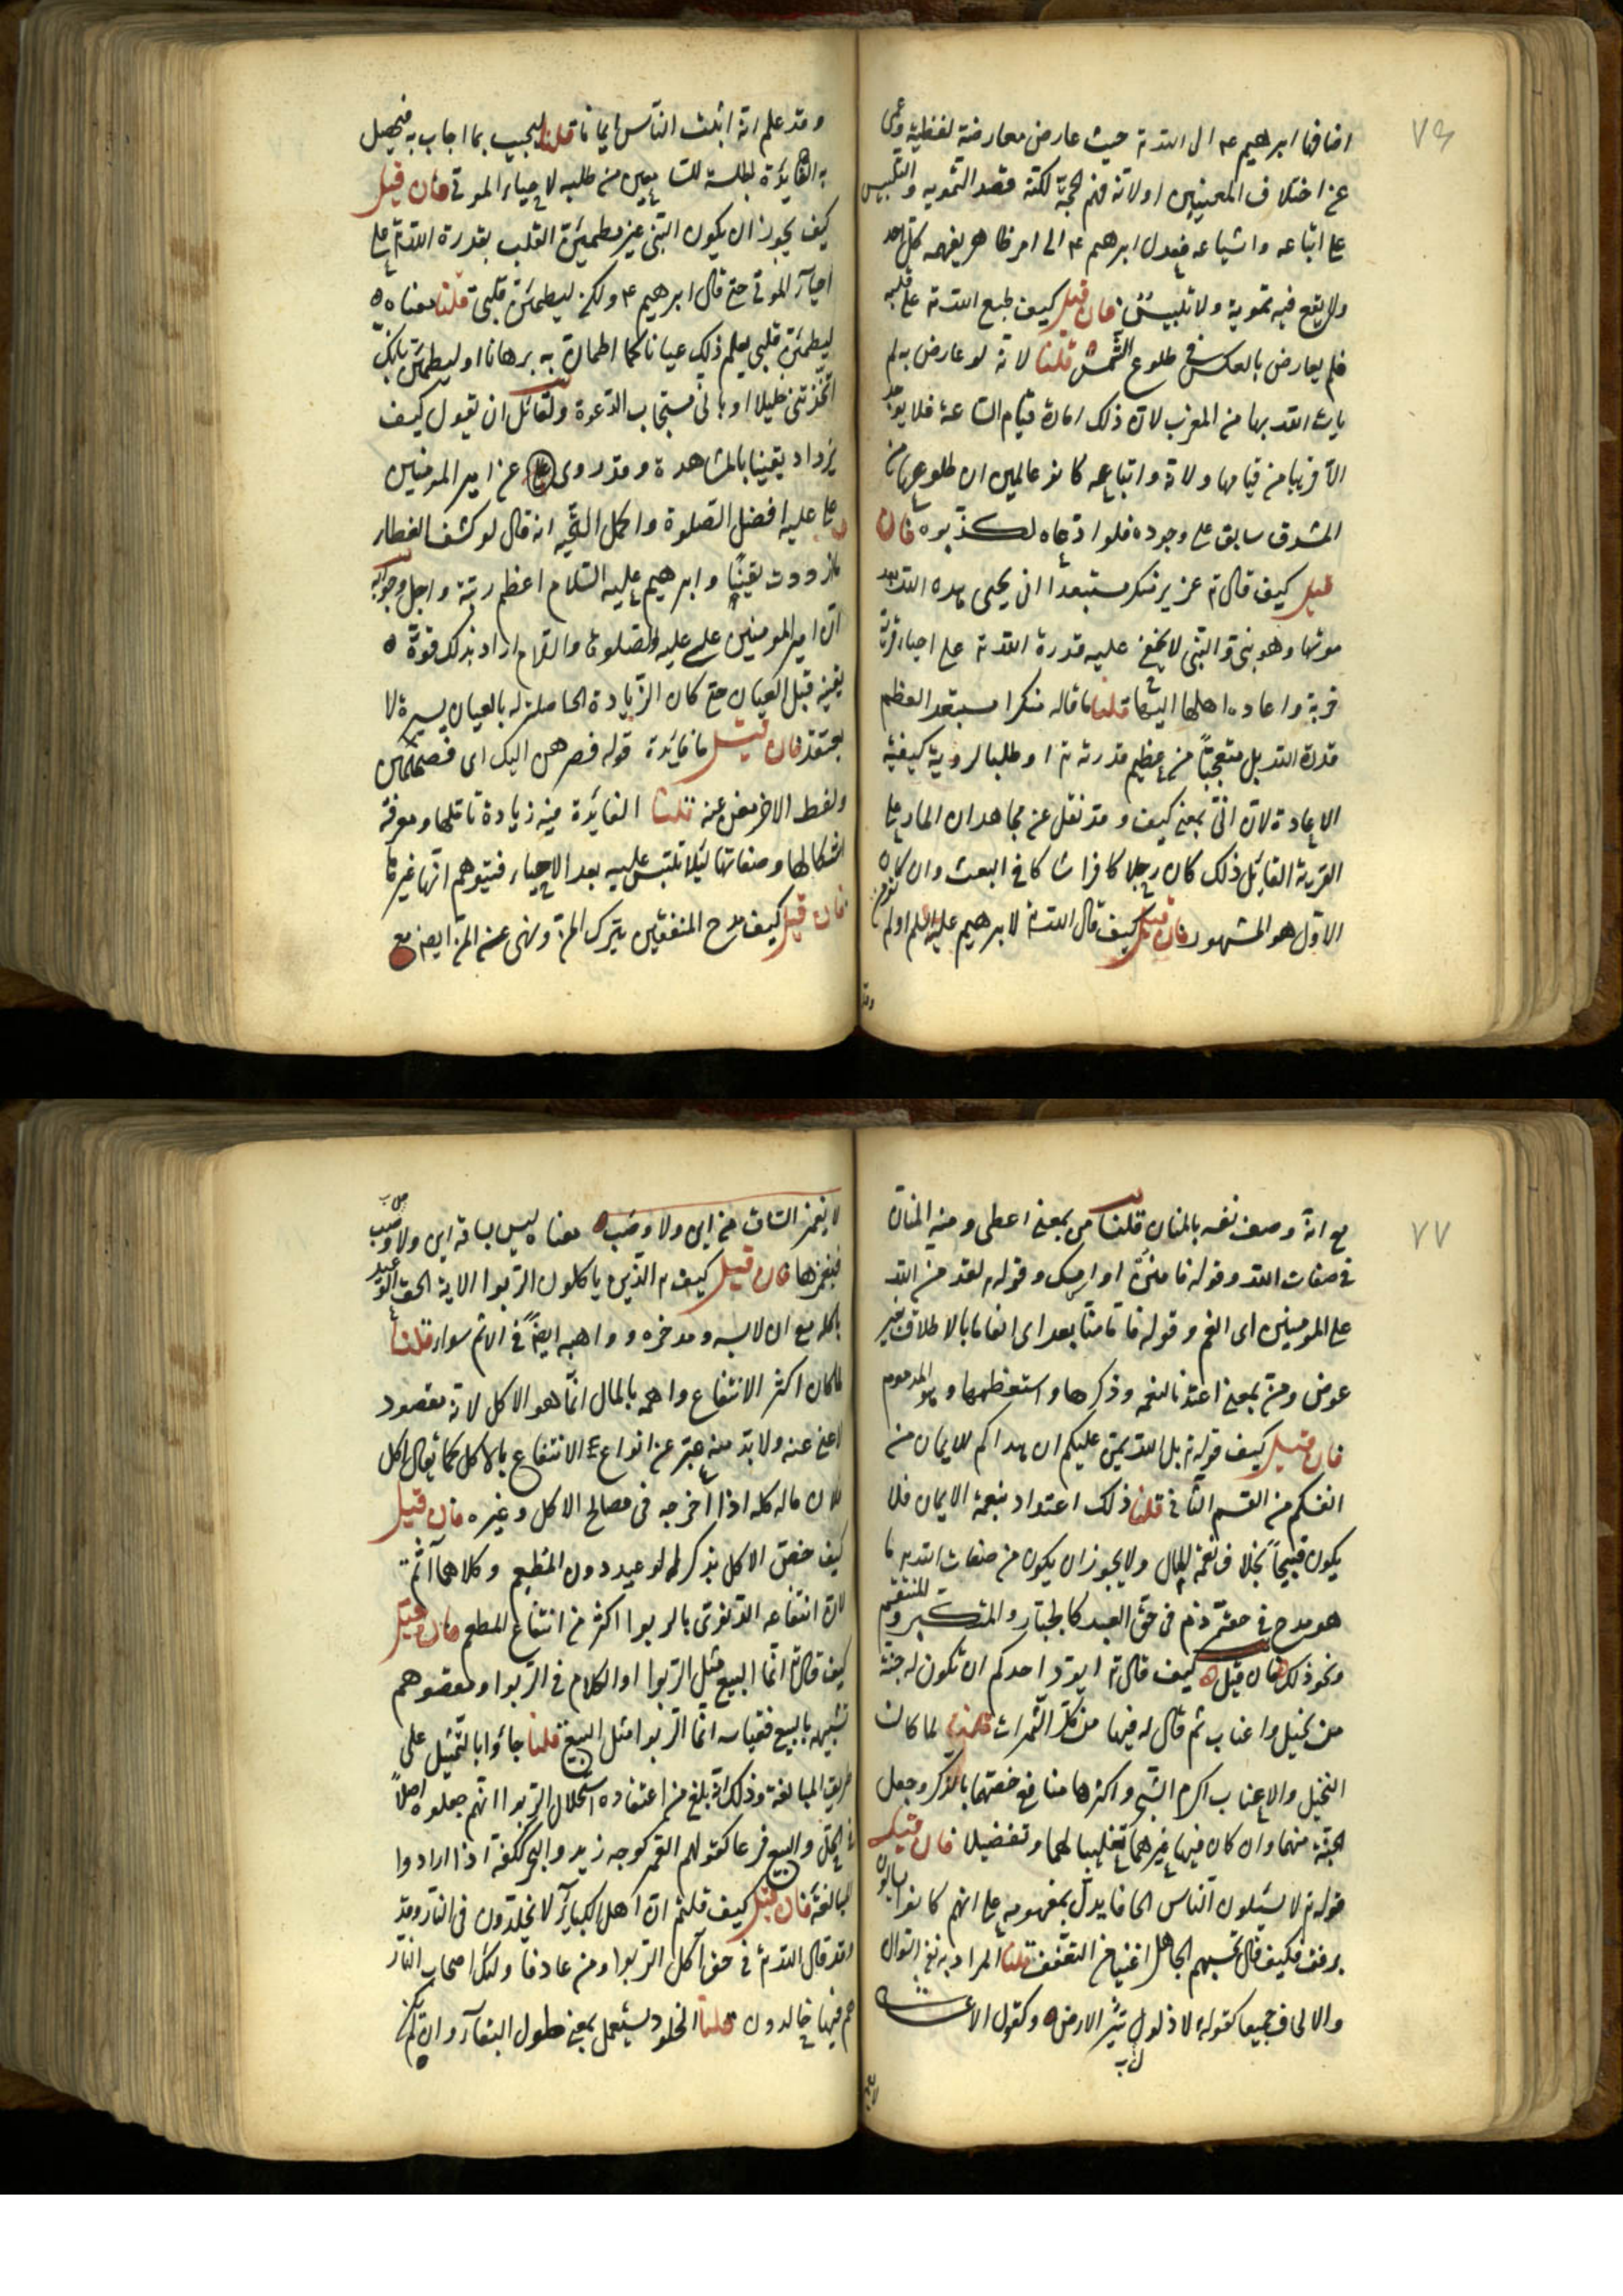 ٧٦
اضافها ابرهيم ع م الى الله ته حيث عارض معارضة لفظية وعمى
عن اختلاف المعنيين اولانه فهم الحجة لكنه قصد التمويه والتلبيس
على اتباعه واشياعه فعدل ابرهيم ع م الى امر ظاهر يفهمه كل احد
ولا يقع فيه تموية ولا تلبيس فان قيل كيف طبع الله ته على قلبه
فلم يعارض بالعكس فى طلوع الشمس قلنا لانه لو عارض به لم
يات الله بها من المغرب لان ذلك امارة قيام الساعة فلا يوجد
الا قريبا من قيامها ولانه واتباعه كانو عالمين ان طلوعها من
المشرق سابق على وجوده فلو ادعاه لكذبوه فان
قيل كيف قال ته عزير منكر مستبعدا انى يحيى هذه الله بعد
موتها وهو نبى والنبى لا يخفى عليه قدرة الله ته على احياء قرية
خربة واعاده اهلها اليها قلنا ما قاله منكرا مستبعد العظم
قدرة الله بل متعجبا من عظيم قدرته ته او طلبا لروية كيفية
الاعادة لان انى بمعنى كيف وقد نقل عن مجاهد ان المار على
القرية القائل ذلك كان رجلا كافرا شاكا فى البعث وان كان
الاول هو المشهور فان قيل كيف قال الله ته لابرهيم عليه السلم اولم تؤمن
وقد
وقد علم انه اثبت الناس ايمانا قلنا ليجيب بما اجاب به فيحصل
به الفائدة لجلسة للسامعين من طلبه لاحياء الموتى فان قيل
كيف يجوز ان يكون النبى غير مطمئن القلب بقدرة الله ته على
احياء الموتى حتى قال ابرهيم ع م ولكن ليطمئن قلبى قلنا معناه
ليطمئن قلبى بعلم ذلك عيانا كما اطمان به برهانا او ليطمئن بانك
اتخذتنى خليلا او بانى مستجاب الدعوة ولقائل ان يقول كيف
يزداد يقينا بالمشاهدة وقد روى عن امير المؤمنين
على عليه افضل الصلوة واكمل التحيه انه قال لو كشف الغطاء
ما زددت يقينا وابرهيم عليه السلام اعظم رتبة واجل وجوابه
ان امير المومنين على عليه الصلوة والسلام اراد بذلك قوة
يقينه قبل العيان حتى كان الزيادة الحاصلة له بالعيان يسيرة لا
يعتقد فان قيل ما فايدة قوله فصرهن اليك اى فضمهن
ولفظ الاخذ مغن عنه قلنا الفايدة فيه زيادة تاملها ومعرفة
اشكالها وصفاتها ليلا تلتبس عليه بعد الاحياء فيتوهم انها غيرها
فان قيل كيف مدح المنفقين بترك المن ونهى عن المن ايضا مع
٧٧
مع انه وصف نفسه بالمنان قلنا من بمعنى اعطى ومنه المنان
فى صفات الله وقوله فامنن او امسك وقوله لقد من الله
على المومنين اى انعم وقوله فاما منا بعد اى انعاما بالاطلاق بغير
عوض ومن بمعنى اعتد بالنعمه وذكرها واستعظمها وهو المذموم
فان قيل كيف قوله ته بل الله يمن عليكم ان هداكم للايمان من
انفسكم من القسم الثانى قلنا ذلك اعتداد بنعمة الايمان فلا
يكون قبيحا بخلاف نعمة المال ولا يجوز ان يكون من صفات الله به ما
هو مدح فى حقه ذم فى حق العبد كالجبار والمتكبر والمنتقم
ونحو ذلك فان قيل كيف قال ته ايود احدكم ان تكون له جنة
من نخيل واعناب ثم قال له فيها من كل الثمرات قلنا لما كان
النخيل والاعناب اكرم الشجر واكثرها منافع خصهما بالذكر وجعل
الجنة منهما وان كان فيها غيرهما تغليبا لهما وتفضيلا فان قيل
قوله ته لا يسئلون الناس الحافا يدل بمفهومه على انهم كانوا يسالون
برفق فكيف قال يحسبهم الجاهل اغنياء من التعفف قلنا المراد به نفى السوال
والالحاف جميعا كقوله لا ذلول تثير الارض وكقول الاعشى
لا يغمز الساق من اين ولا وصب معناه ليس بساقه اين ولا وصب
فيغمزها فان قيل كيف ته الذين ياكلون الربوا الاية الحق الوعيد
باكله مع ان لابسه ومدخره وواهبه ايضا فى الاثم سواء قلنا
لما كان اكثر الانتفاع واهمه بالمال انما هو الاكل لانه مقصود
لا غنى عنه ولا بد منه عبر عن انواع الانتفاع بالاكل كما يقال اكل
فلان ماله كله اذا اخرجه فى مصالح الاكل وغيره فان قيل
كيف خص الاكل بذكر الوعيد دون المطعم وكلاهما آثم
لان انتفاعه الدنيوى بالربوا اكثر من انتفاع المطعم فان قيل
كيف قال ته انما البيع مثل الربوا او الكلام فى الربوا ومقصوهم
تشبيهه بالبيع فقياسه انما الربوا مثل البيع قلنا جاؤا بالتمثيل على
طريق المبالغة وذلك انه بلغ من اعتقاده استحلال الربوا انهم جعلوه اصلا
فى الحل والبيع فرعا كقولهم القمر كوجه زيد والبحر ككفه اذا ارادوا
المبالغة فان قيل كيف قلتم ان اهل الكبائر لا يخلدون فى النار وقد
وقد قال الله ته فى حق آكل الربوا ومن عاد فاولئك اصحاب النار
هم فيها خالدون قلنا الخلود يستعمل بمعنى طول البقاء وان لم يكن